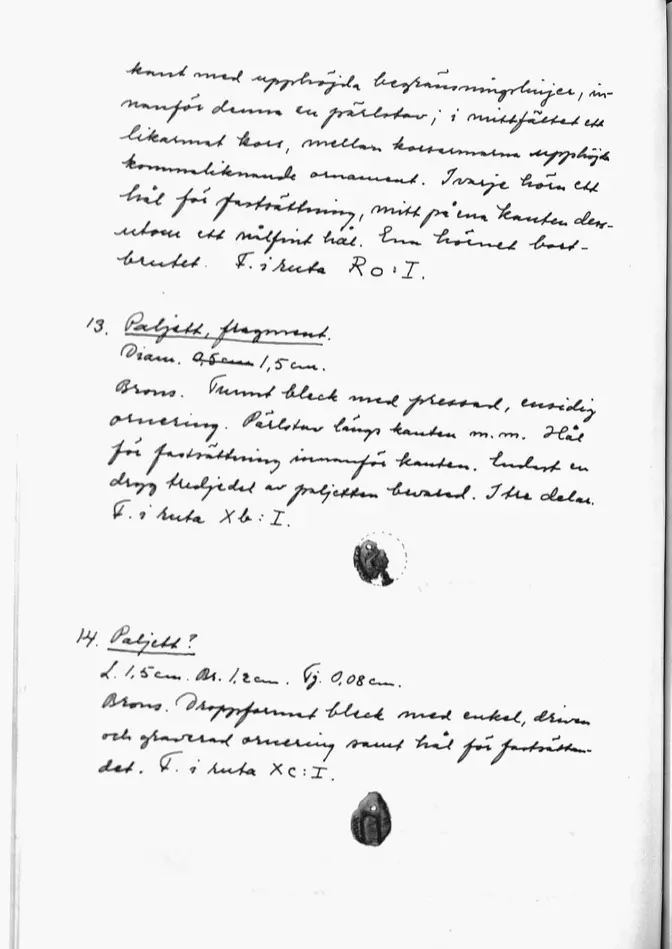 kant med upphöjda begränsningslinjer, in-
nanför denna en pärlstav; i mittfältet ett
likarmat kors, mellan korsarmarna upphöjda
kommaliknande ornament. I varje hörn ett
hål för fastsättning, mitt på ena kanten dess-
utom ett nålfint hål. Ena hörnet bort-
brutet. F. i ruta Ro: I.
13. Paljett, fragment.
Diam. 0,5 cm 1,5 cm.
Brons. Tunnt bleck med pressad, ensidig
ornering. Pärlstav längs kanten m.m. Hål
för fastsättning innanför kanten. Endast en
dryg tredjedel av paljetten bevarad. I tre delar.
F. i ruta Xb: I.
14. Paljett?
L. 1,5 cm. Br. 1,2 cm. Tj. 0,08 cm.
Brons. Droppformat bleck med enkel, driven
och graverad ornering samt hål för fastsättan-
det. F. i ruta Xc: I.